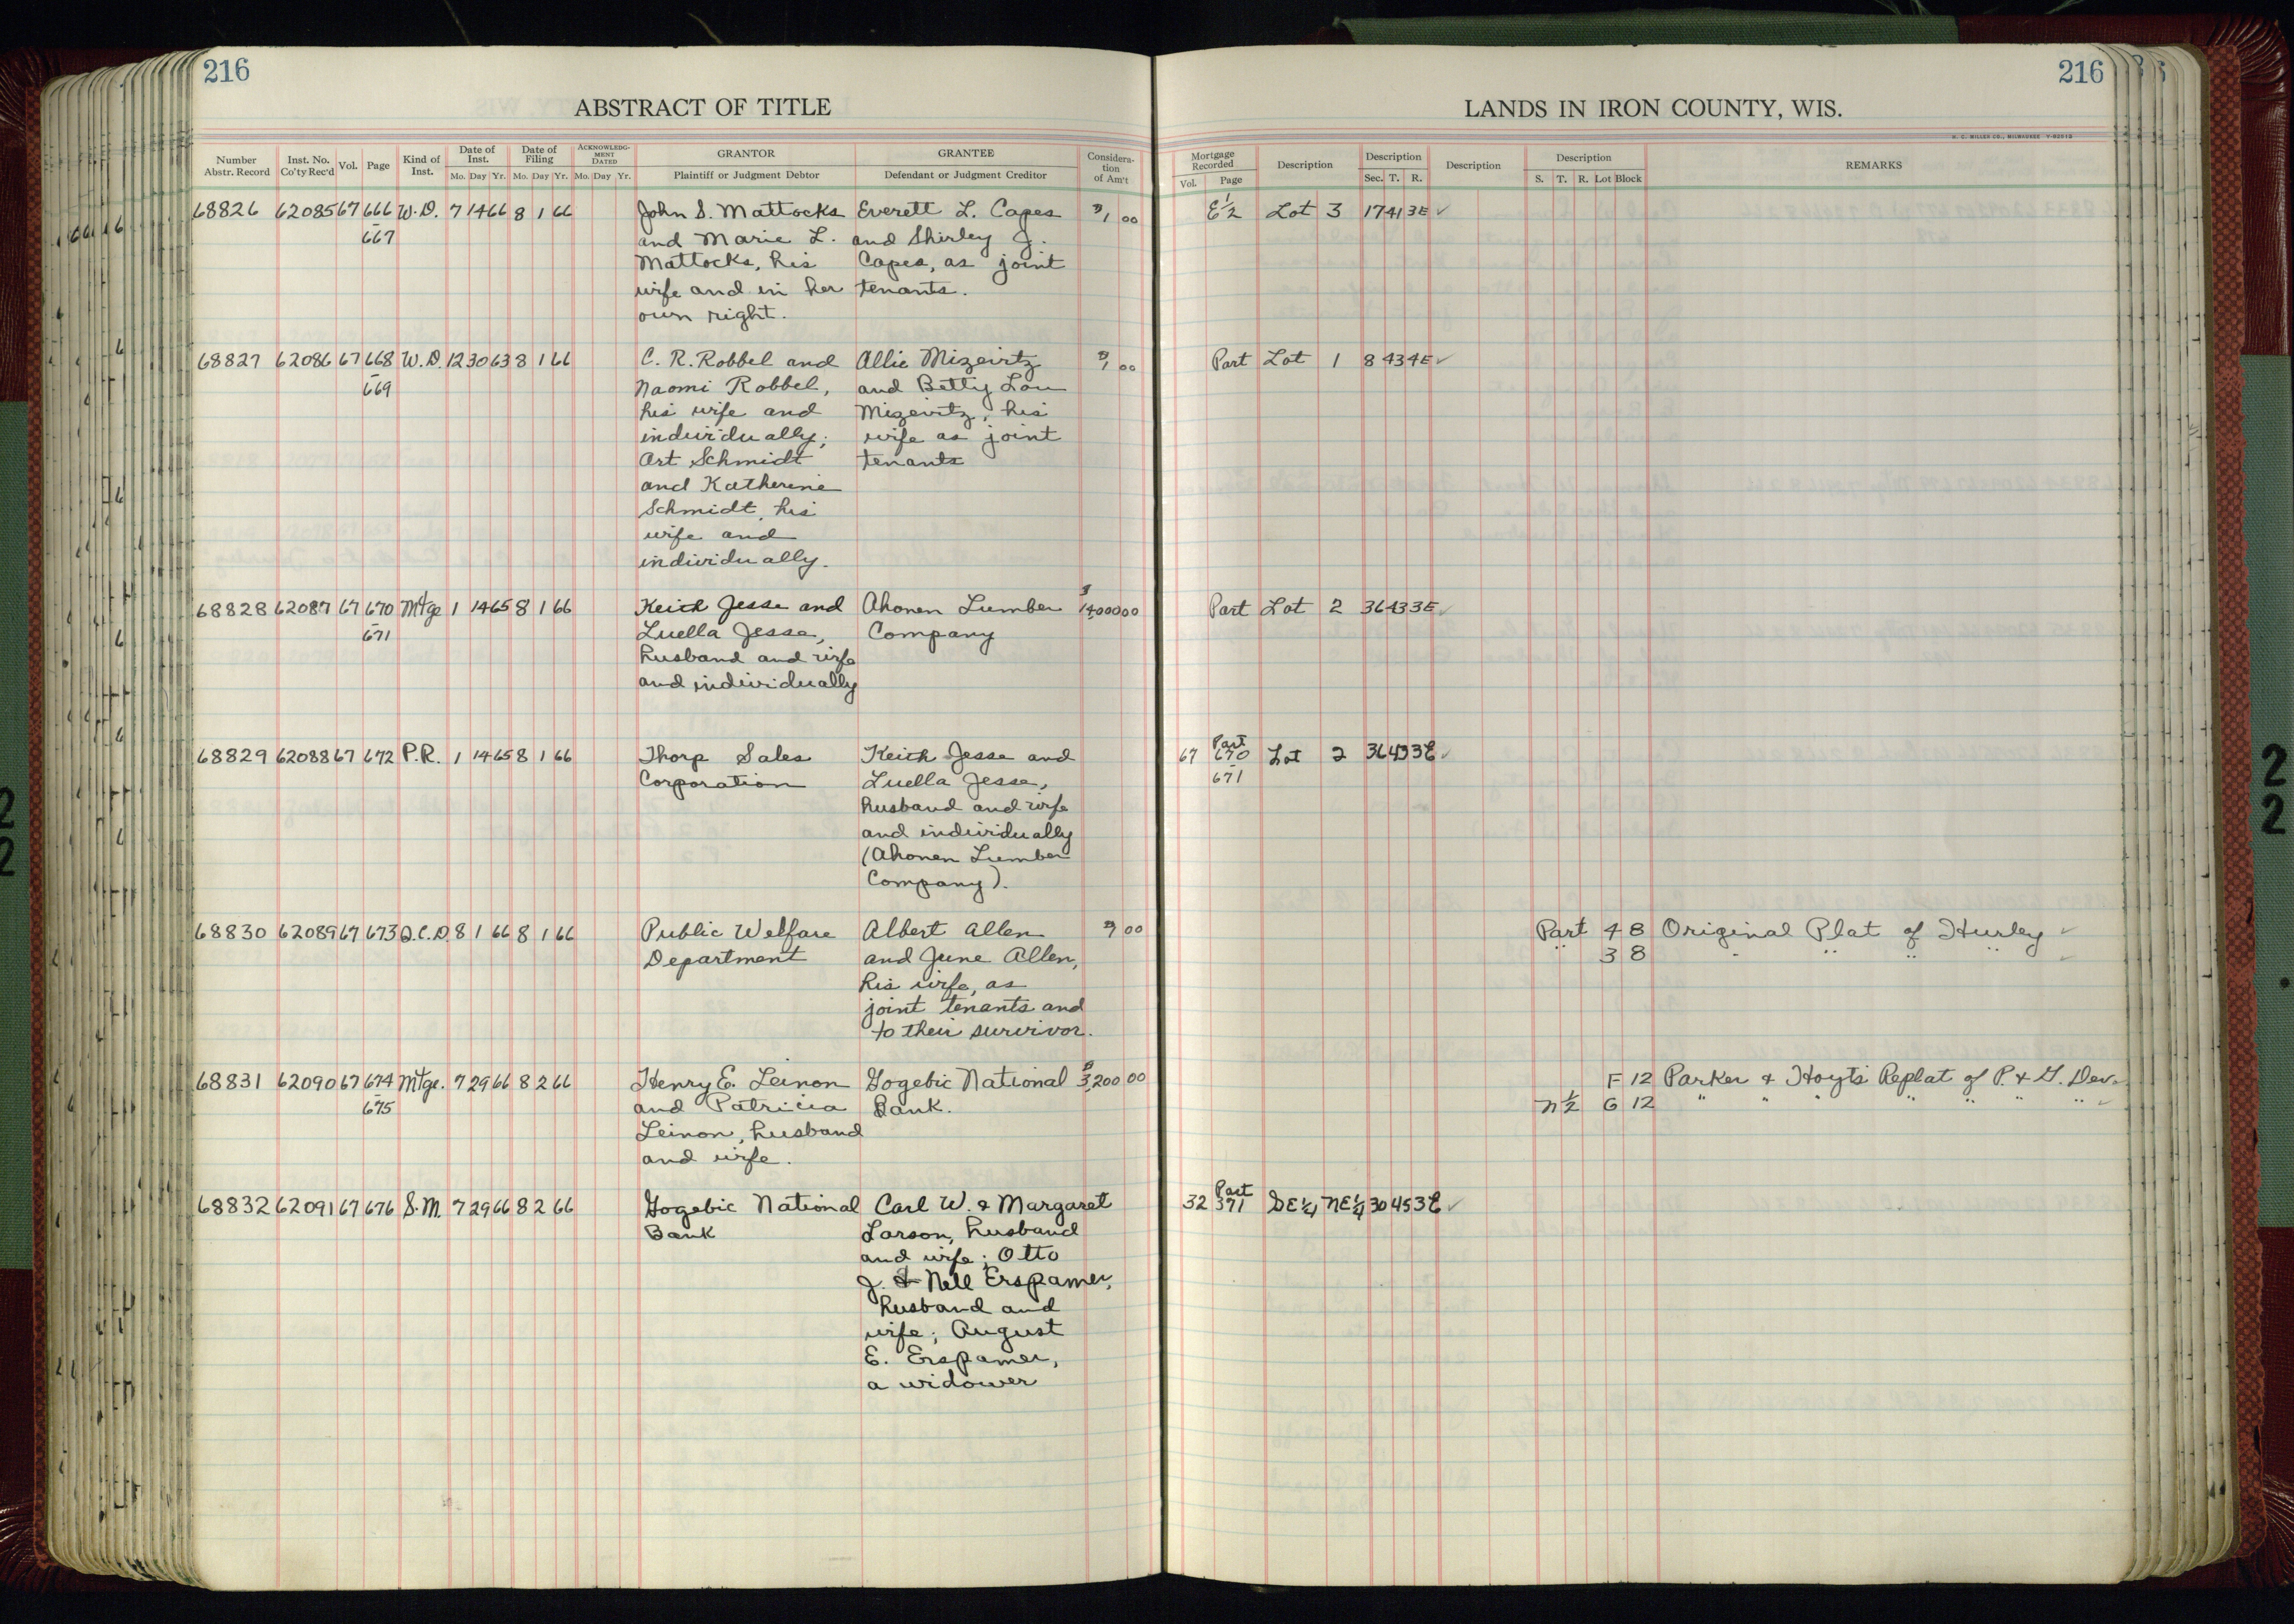 216
216
ABSTRACT OF TITLE
LANDS IN IRON COUNTY, WIS.
H. C. MILLER CO., MILWAUKEE
Number Abstr. Record Inst. No. Co'ty Rec'd Vol. Page Kind of Inst. Date of Inst. Mo. Day Yr. Date of Filing Mo. Day Yr. ACKNOWLEDGMENT DATED Mo. Day Yr. GRANTOR Plaintiff or Judgment Debtor GRANTEE Defendant or Judgment Creditor Consideration of Am't
Mortgage Recorded Vol. Page Description Description Sec. T. R. Description Description S. T. R. Lot Block REMARKS
68826 62085 67 666 W.D. 7 14 66 8 1 66 John S. Mattocks Everett L. Capes $1 00 E½ Lot 3 17 41 3E ✓
- 667 and Marie L. and Shirley J.
Mattocks, his Capes, as joint
wife and in her tenants.
own right.
68827 62086 67 668 W.D. 12 30 63 8 1 66 C. R. Robbel and Allie Mizeivtz $1 00 Part Lot 1 8 43 4E ✓
- 669 Naomi Robbel, and Betty Lou
his wife and Mizevitz, his
individually; wife as joint
Art Schmidt tenants
and Katherine
Schmidt, his
wife and
individually.
68828 62087 67 670 Mtge 1 14 65 8 1 66 Keith Jesse and Ahonen Lumber $14,000 00 Part Lot 2 36 43 3E ✓
- 671 Luella Jesse, Company
husband and wife
and individually
68829 62088 67 672 P.R. 1 14 65 8 1 66 Thorp Sales Keith Jesse and 67 Part 670 Lot 2 36 43 3E ✓
Corporation Luella Jesse, - 671
husband and wife
and individually
(Ahonen Lumber
Company).
68830 62089 67 673 Q.C.D. 8 1 66 8 1 66 Public Welfare Albert Allen 00 Part 4 8 Original Plat of Hurley ✓
Department and June Allen, " 3 8 " " " " ✓
his wife, as
joint tenants and
to their survivor.
68831 62090 67 674 Mtge. 7 29 66 8 2 66 Henry E. Leinon Gogebic National $3,200 00 F 12 Parker & Hoyt's Replat of P. & G. Dev.
- 675 and Patricia Bank. N½ G 12 " " " " " " " ✓
Leinon, husband
and wife.
68832 62091 67 676 S.M. 7 29 66 8 2 66 Gogebic National Carl W. & Margaret 32 Part 371 SE¼ NE¼ 30 45 3E ✓
Bank Larson, husband
and wife; Otto
J. & Nell Erspamer,
husband and
wife; August
E. Erspamer,
a widower
2
2
2
2